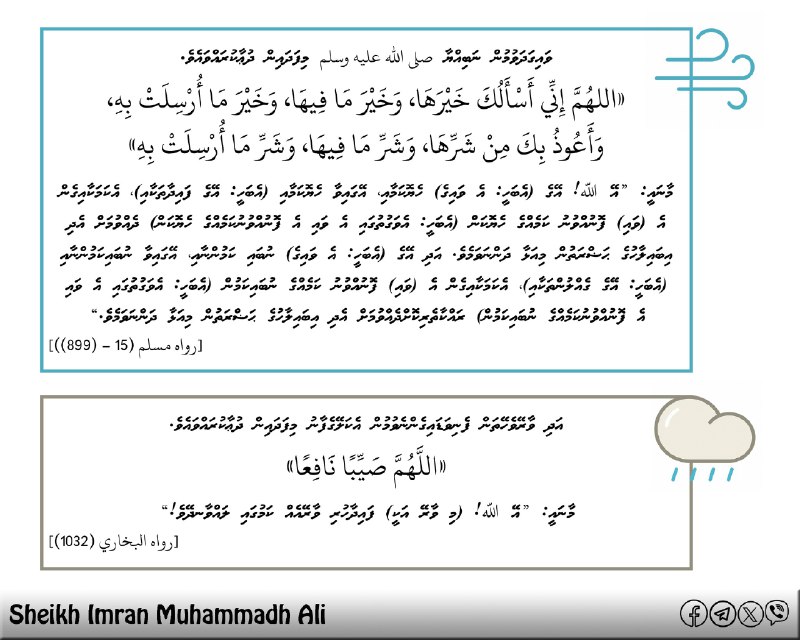 ވައިގަދަވުމުން ނަބިއްޔާ صلى الله عليه وسلم މިފަދައިން ދުޢާކުރައްވައެވެ.
«اللهُمَّ إِنِّي أَسْأَلُكَ خَيْرَهَا، وَخَيْرَ مَا فِيهَا، وَخَيْرَ مَا أُرْسِلَتْ بِهِ،
وَأَعُوذُ بِكَ مِنْ شَرِّهَا، وَشَرِّ مَا فِيهَا، وَشَرِّ مَا أُرْسِلَتْ بِهِ»
މާނައީ: ”އޭ الله! އޭގެ (އެބަހީ: އެ ވައިގެ) ހެޔޮކަމާއި، އޭގައިވާ ހެޔޮކަމާއި (އެބަހީ: އޭގެ ފައިދާތަކާއި)، އެކަމަކާއިގެން
އެ (ވައި) ފޮނުއްވުނު ކަމެއްގެ ހެޔޮކަން (އެބަހީ: އެވަގުތުގައި އެ ވައި އެ ފޮނުއްވުނުކަމެއްގެ ހެޔޮކަން) ދެއްވުމަށް އެދި
އިބައިލާހުގެ ޙަޟްރަތުން މިއަޅާ ދަންނަވަމެވެ. އަދި އޭގެ (އެބަހީ: އެ ވައިގެ) ނުބައި ކަމުންނާއި، އޭގައިވާ ނުބައިކަމުންނާއި
(އެބަހީ: އޭގެ ގެއްލުންތަކާއި)، އެކަމަކާއިގެން އެ (ވައި) ފޮނުއްވުނު ކަމެއްގެ ނުބައިކަމުން (އެބަހީ: އެވަގުތުގައި އެ ވައި
އެ ފޮނުއްވުނުކަމެއްގެ ނުބައިކަމުން) ރައްކާތެރިކޮށްދެއްވުމަށް އެދި އިބައިލާހުގެ ޙަޟްރަތުން މިއަޅާ ދަންނަވަމެވެ.“
[رواه مسلم (15 – (899))]
އަދި ވާރޭވެހޭތަން ފެނިވަޑައިގެންނެވުމުން އެކަލޭގެފާނު މިފަދައިން ދުޢާކުރައްވައެވެ.
«اللَّهُمَّ صَيِّبًا نَافِعًا»
މާނައީ: ”އޭ الله! (މި ވާރޭ އަކީ) ފައިދާހުރި ވާރޭއެއް ކަމުގައި ލައްވާނދޭވެ!“
[رواه البخاري (1032)]
Sheikh Imran Muhammadh Ali